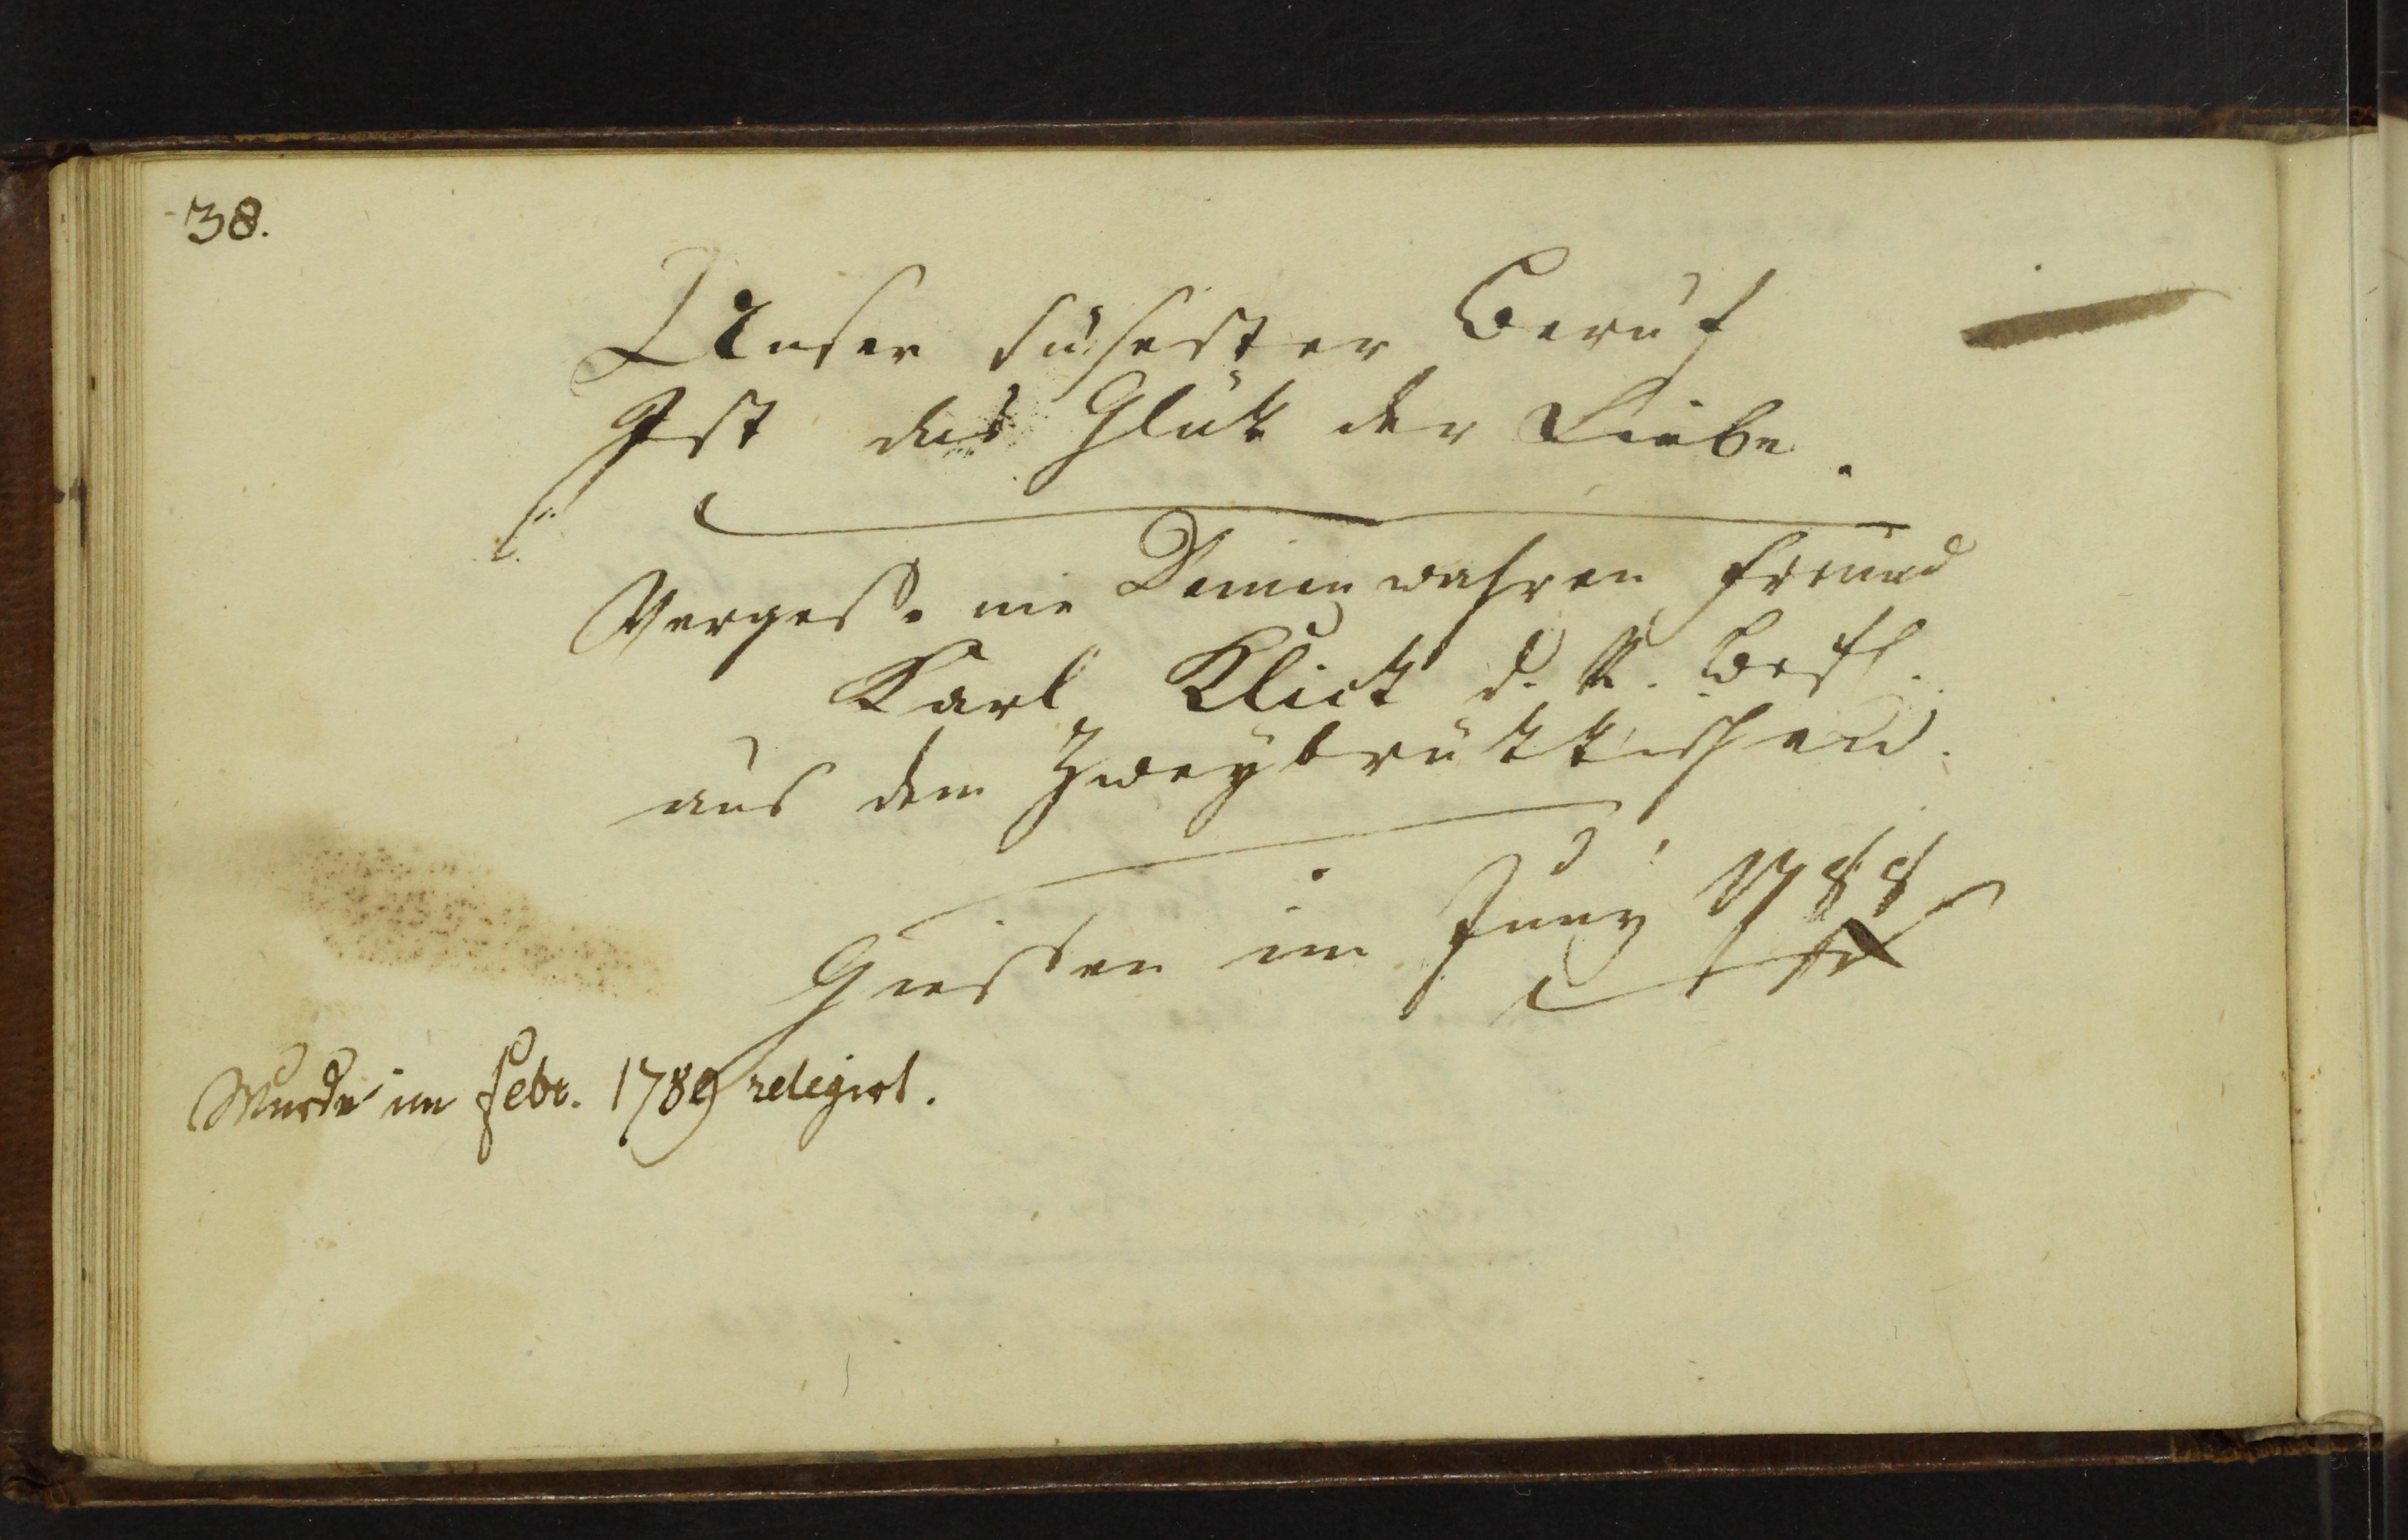 38.
Unser süsester Beruf
Ist das Glük der Liebe.
Vergess. nie Deinen wahren Freund
Karl Klick d. R. Befl.
aus dem Zweybrükkischen.
Giessen im Juny 1788
Wurde im Febr. 1789 relegirt.